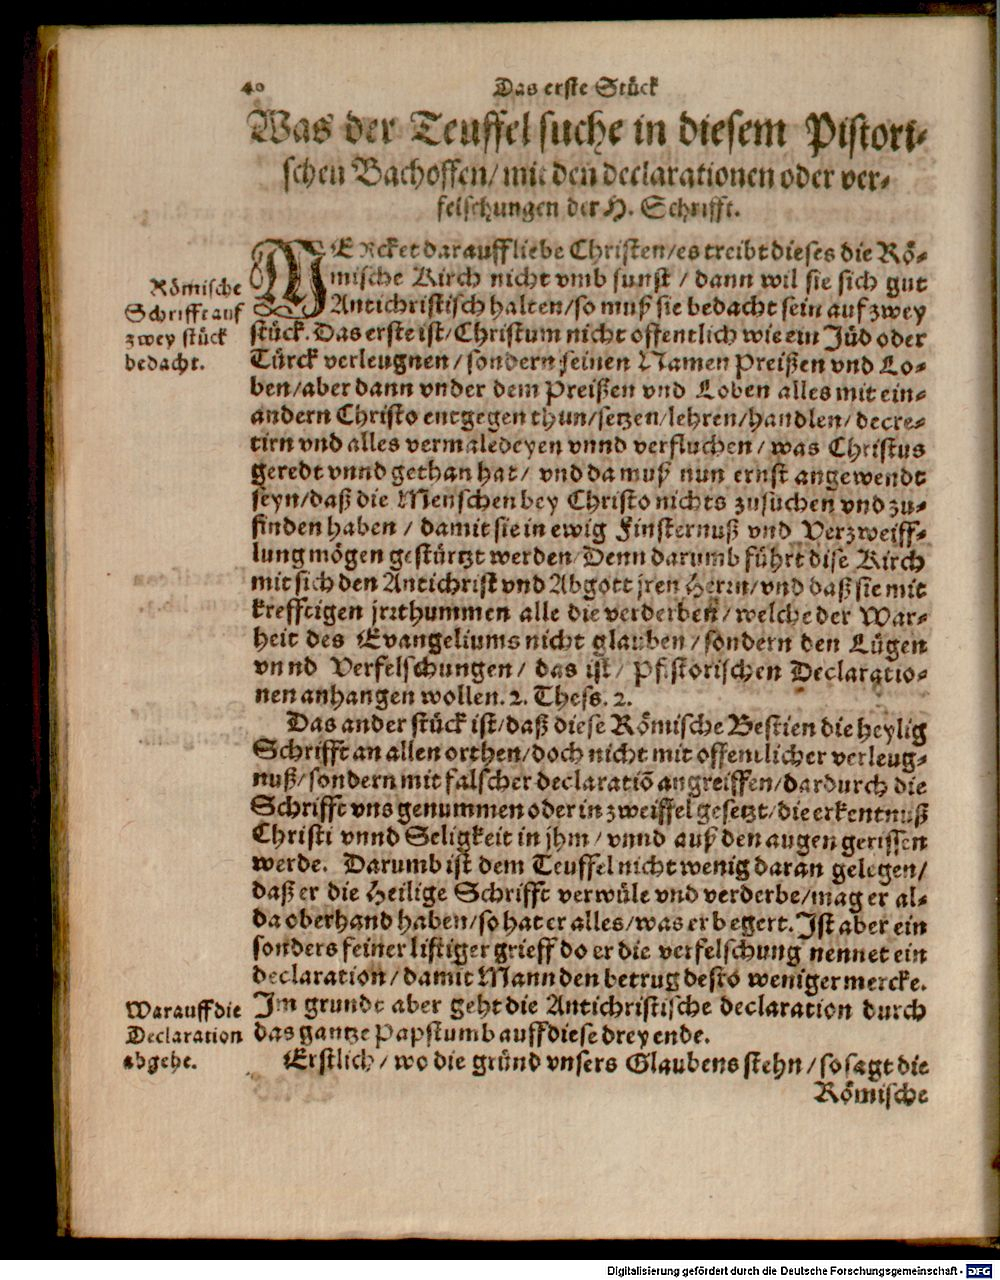 40
Das erste Stück
Was der Teuffel suche in diesem Pistori-
schen Bachoffen/ mit den declarationen oder ver-
felschungen der H. Schrifft.
MErcket darauff liebe Christen/ es treibt dieses die Rö-
mische Kirch nicht vmb sunst / dann wil sie sich gut
Antichristisch halten/ so muß sie bedacht sein auf zwey
stück. Das erste ist/ Christum nicht offentlich wie ein Jüd oder
Türck verleugnen/ sondern seinen Namen Preißen vnd Lo-
ben/ aber dann vnder dem Preißen vnd Loben alles mit ein-
andern Christo entgegen thun/ setzen/ lehren/ handlen/ decre-
tirn vnd alles vermaledeyen vnnd verfluchen / was Christus
geredt vnnd gethan hat/ vnd da muß nun ernst angewendt
seyn/ daß die Menschen bey Christo nichts zusuchen vnd zu-
finden haben / damit sie in ewig Finsternuß vnd Verzweiff-
lung mögen gestürtzt werden/ Denn darumb führt dise Kirch
mit sich den Antichrist vnd Abgott jren Herrn/ vnd daß sie mit
krefftigen jrrthummen alle die verderben/ welche der War-
heit des Evangeliums nicht glauben/ sondern den Lügen
vnnd Verfelschungen/ das ist/ Pistorischen Declaratio-
nen anhangen wollen. 2. Thess. 2.
Das ander stück ist/ daß diese Römische Bestien die heylig
Schrifft an allen orthen/ doch nicht mit offentlicher verleug-
nuß/ sondern mit falscher declaratiō angreiffen/ dardurch die
Schrifft vns genummen oder in zweiffel gesetzt/ die erkentnuß
Christi vnnd Seligkeit in jhm / vnnd auß den augen gerissen
werde. Darumb ist dem Teuffel nicht wenig daran gelegen/
daß er die Heilige Schrifft verwüle vnd verderbe/ mag er al-
da oberhand haben/ so hat er alles/ was er begert. Ist aber ein
sonders feiner listiger grieff do er die verfelschung nennet ein
declaration/ damit Mann den betrug desto weniger mercke.
Im grundt aber geht die Antichristische declaration durch
das gantze Papstumb auff diese drey ende.
Erstlich/ wo die gründ vnsers Glaubens stehn/ so sagt die
Römische
Römische
Schrifft auf
zwey stück
bedacht.
Warauff die
Declaration
abgehe.
Digitalisierung gefördert durch die Deutsche Forschungsgemeinschaft - DFG